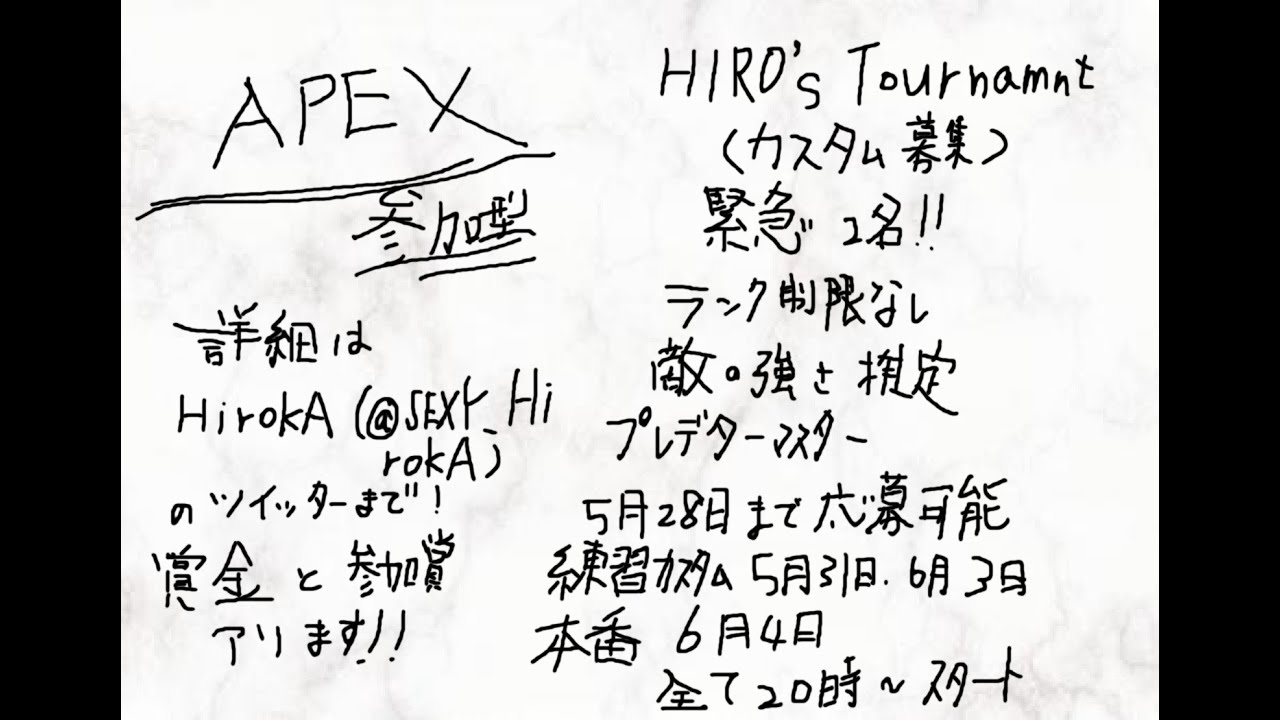 APEX
参加型
詳細は
HirokA (@SEXY_Hi
rokA)
のツイッターまで!
賞金と参加賞
アリます!!
HIRO's Tournamnt
(カスタム募集)
緊急 2名!!
ランク制限なし
敵の強さ推定
プレデターマスター
5月28日まで応募可能
練習カスタム 5月31日.6月3日
本番 6月4日
全て20時~スタート